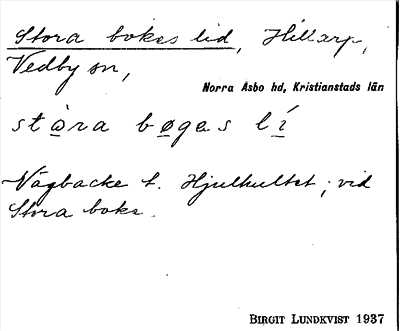 Stora bokes lid, Hillarp,
Vedby sn,
Norra Åsbo hd, Kristianstads län
stòra bøges lí
Vägbacke t. Hjulhultet; vid
Stora boke.
BIRGIT LUNDKVIST 1937